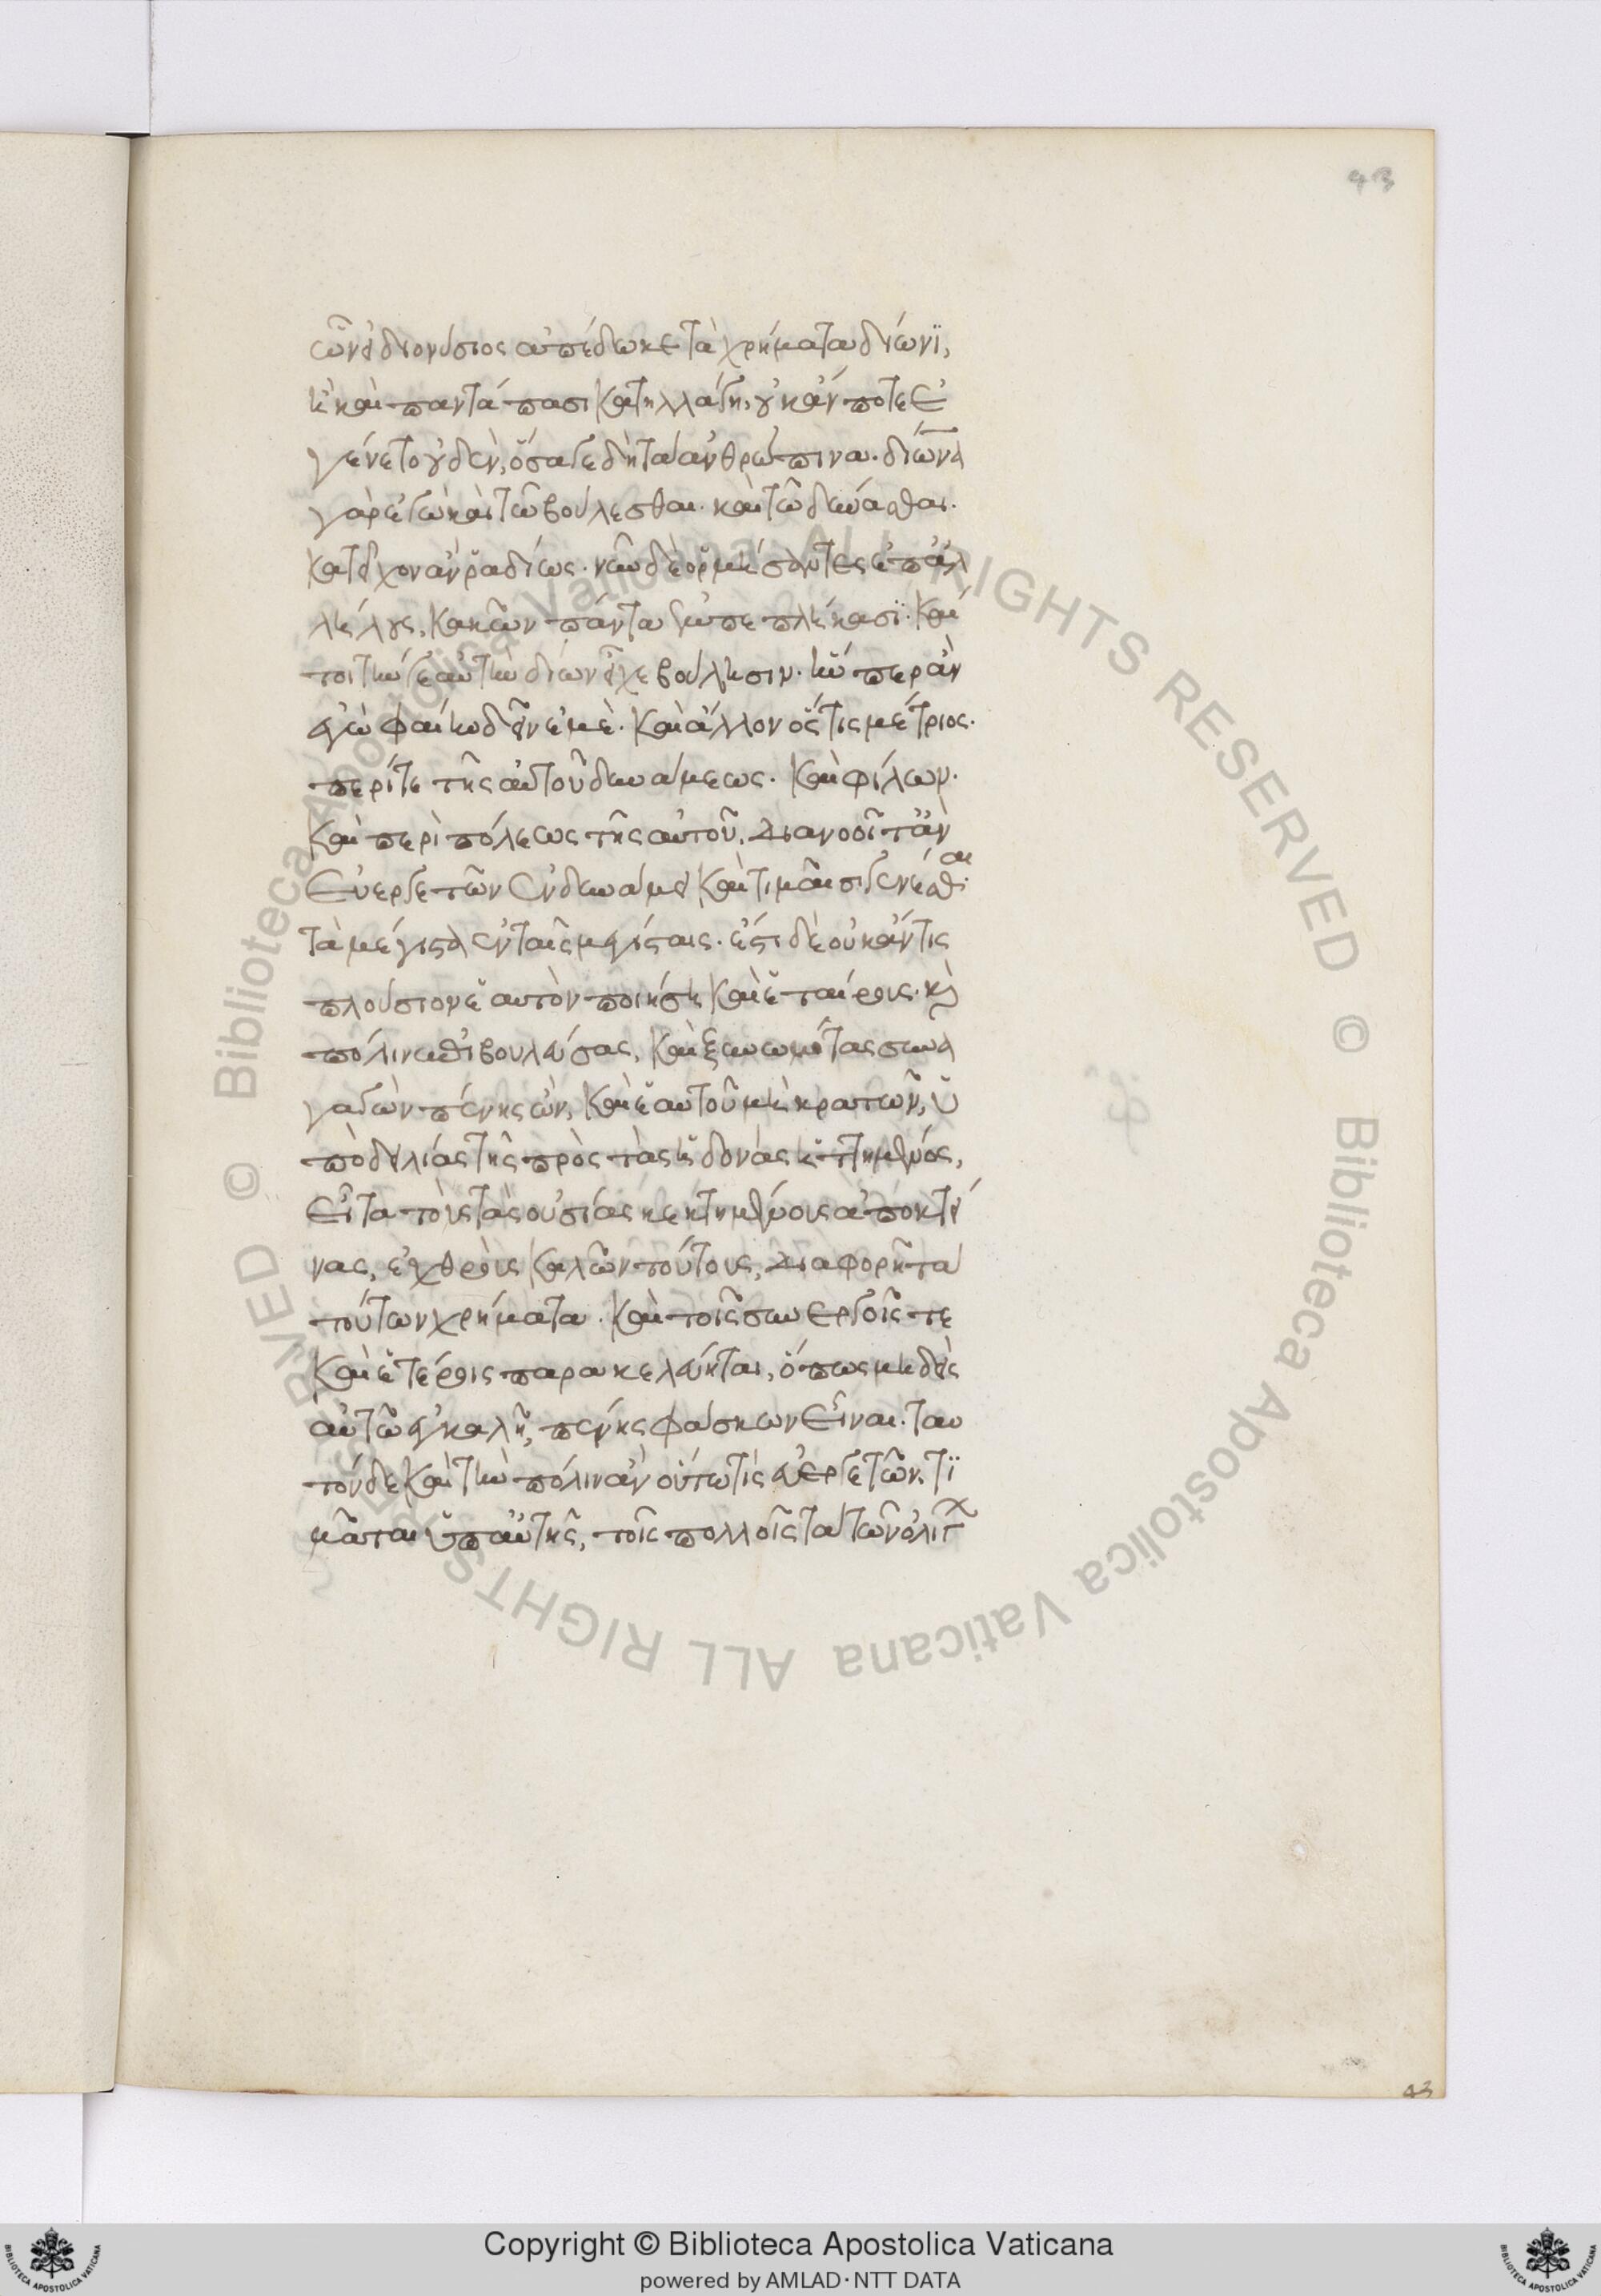 43
ὧν εἰ διονύσιος ἀπέδωκε τὰ χρήματα δίωνϊ,
ἢ καὶ παντάπασι κατηλλάγη, οὐκ ἄν ποτε ἐ
γένετο οὐδὲν, ὅσα γε δὴ τἀνθρώπινα. δίωνα
γὰρ ἐγὼ καὶ τῶ βούλεσθαι. καὶ τῶ δύνασθαι.
κατεῖχον ἂν ῥαδίως. νῦν δὲ ὁρμήσαντες ἐπ' ἀλ
λήλους, κακῶν πάντα ἐμπεπλήκασϊ. καί
τοι τήν γε αὐτὴν δίων εἶχε βούλησιν. ἥν περ ἂν
ἐγὼ φαίην δεῖν ἐμὲ. καὶ ἄλλον ὅστις μέτριος.
περί τε τῆς αὑτοῦ δυνάμεως. καὶ φίλων.
καὶ περὶ πόλεως τῆς αὑτοῦ, διανοοῖτ' ἂν
εὐεργετῶν ἐν δυνάμει καὶ τιμαῖσι γενέσθαι.
τὰ μέγιστα ἐν ταῖς μεγίσταις. ἔστι δὲ οὐκ ἄν τις
πλούσιον ἑαυτὸν ποιήση καὶ ἑταίρους. καὶ
πόλιν ἐπιβουλεύσας, καὶ ξυνωμότας συνα
γαγὼν πένης ὢν, καὶ ἑαυτοῦ μὴ κρατῶν, ὑ
πὸ δειλίας τῆς πρὸς τὰς ἡδονὰς ἡττημένος,
εἶτα τοὺς τὰς οὐσίας κεκτημένους ἀποκτεί
νας, ἐχθροὺς καλῶν τούτους, διαφορῆ τὰ
τούτων χρήματα. καὶ τοῖς συνεργοῖς τε
καὶ ἑτέροις παρακελεύηται, ὅπως μηδεὶς
αὐτῶ ἐγκαλῆ, πένης φάσκων εἶναι. ταυ
τὸν δὲ καὶ τὴν πόλιν ἂν οὕτω τίς εὐεργετῶν, τϊ
μᾶται ὑπ' αὐτῆς, τοῖς πολλοῖς τὰ τῶν ὀλίγων
43
Copyright © Biblioteca Apostolica Vaticana
powered by AMLAD·NTT DATA